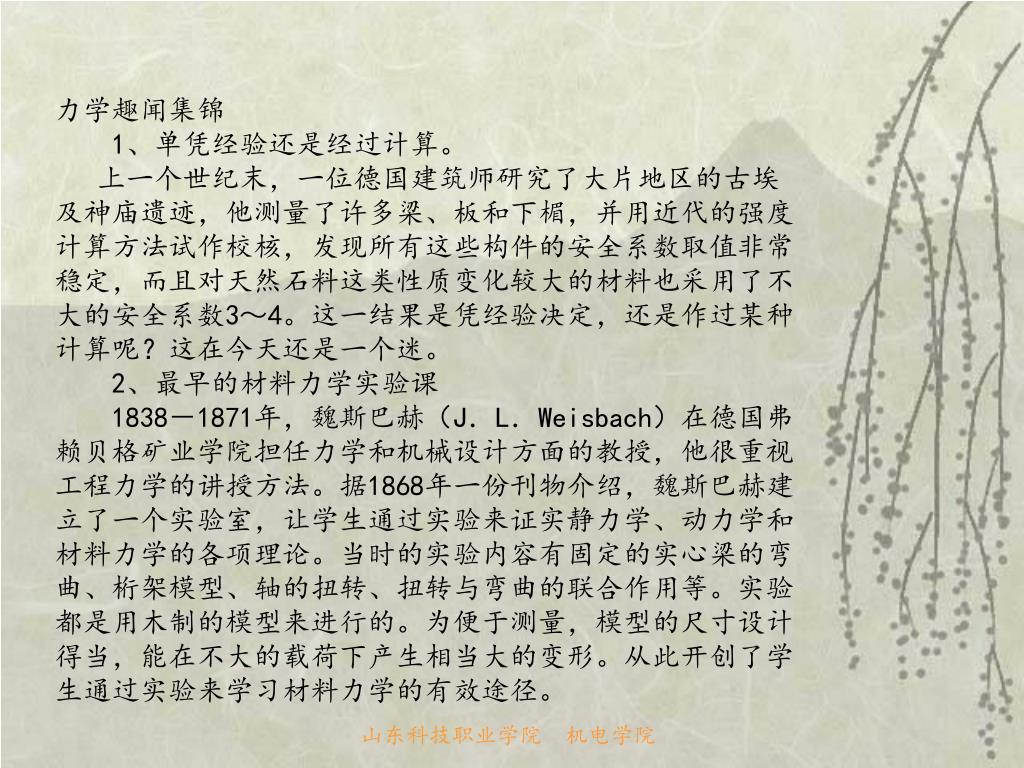 力学趣闻集锦
1、单凭经验还是经过计算。
上一个世纪末，一位德国建筑师研究了大片地区的古埃
及神庙遗迹，他测量了许多梁、板和下楣，并用近代的强度
计算方法试作校核，发现所有这些构件的安全系数取值非常
稳定，而且对天然石料这类性质变化较大的材料也采用了不
大的安全系数3～4。这一结果是凭经验决定，还是作过某种
计算呢？这在今天还是一个迷。
2、最早的材料力学实验课
1838－1871年，魏斯巴赫（J．L．Weisbach）在德国弗
赖贝格矿业学院担任力学和机械设计方面的教授，他很重视
工程力学的讲授方法。据1868年一份刊物介绍，魏斯巴赫建
立了一个实验室，让学生通过实验来证实静力学、动力学和
材料力学的各项理论。当时的实验内容有固定的实心梁的弯
曲、桁架模型、轴的扭转、扭转与弯曲的联合作用等。实验
都是用木制的模型来进行的。为便于测量，模型的尺寸设计
得当，能在不大的载荷下产生相当大的变形。从此开创了学
生通过实验来学习材料力学的有效途径。
山东科技职业学院　机电学院